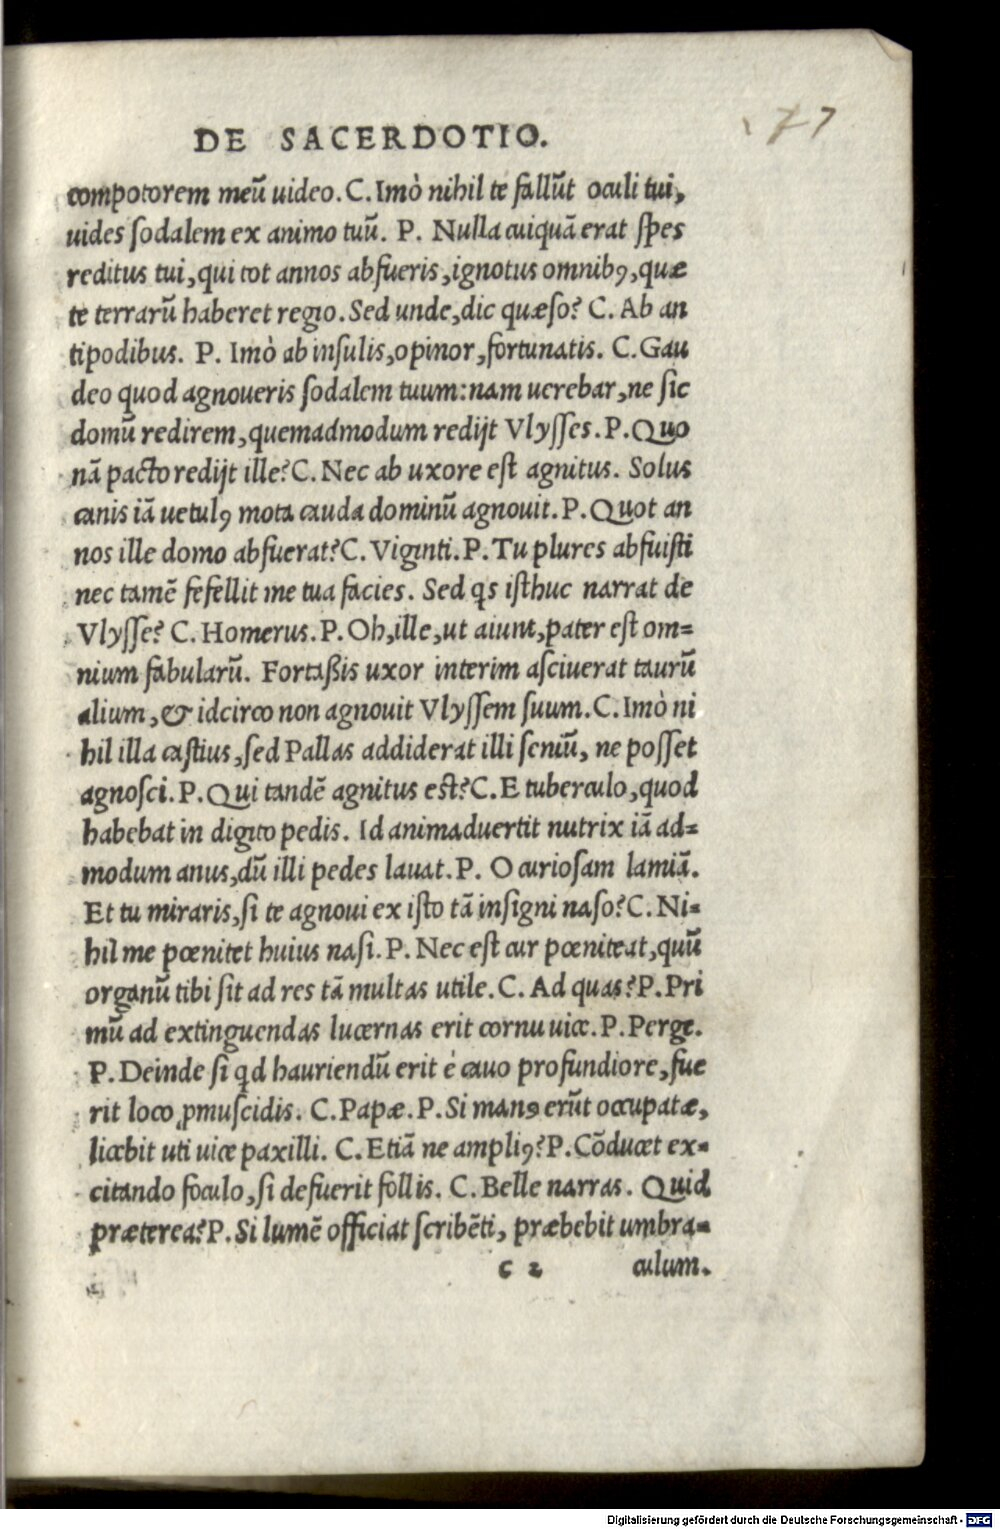 77
DE SACERDOTIO.
compotorem meũ uideo. C. Imò nihil te fallũt oculi tui,
uides ſodalem ex animo tuũ. P. Nulla cuiquã erat ſpes
reditus tui, qui tot annos abfueris, ignotus omnibꝰ, quæ
te terrarũ haberet regio. Sed unde, dic quæſo? C. Ab an
tipodibus. P. Imò ab inſulis, opinor, fortunatis. C. Gau
deo quod agnoueris ſodalem tuum: nam uerebar, ne ſic
domũ redirem, quemadmodum redijt Vlyſſes. P. Quo
nã pacto redijt ille? C. Nec ab uxore eſt agnitus. Solus
canis iã uetulꝰ mota cauda dominũ agnouit. P. Quot an
nos ille domo abfuerat? C. Viginti. P. Tu plures abfuiſti
nec tamẽ fefellit me tua facies. Sed qs iſthuc narrat de
Vlyſſe? C. Homerus. P. Oh, ille, ut aiunt, pater eſt om=
nium fabularũ. Fortaßis uxor interim aſciuerat taurũ
alium, & idcirco non agnouit Vlyſſem ſuum. C. Imò ni
hil illa caſtius, ſed Pallas addiderat illi ſeniũ, ne poſſet
agnoſci. P. Qui tandẽ agnitus eſt? C. E tuberculo, quod
habebat in digito pedis. Id animaduertit nutrix iã ad=
modum anus, dũ illi pedes lauat. P. O curioſam lamiã.
Et tu miraris, ſi te agnoui ex iſto tã inſigni naſo? C. Ni=
hil me pœnitet huius naſi. P. Nec eſt cur pœniteat, quũ
organũ tibi ſit ad res tã multas utile. C. Ad quas? P. Pri
mũ ad extinguendas lucernas erit cornu uice. P. Perge.
P. Deinde ſi qd hauriendũ erit è cauo profundiore, fue
rit loco ꝓmuſcidis. C. Papæ. P. Si manꝰ erũt occupatæ,
licebit uti uice paxilli. C. Etiã ne ampliꝰ? P. Cõducet ex=
citando foculo, ſi defuerit follis. C. Belle narras. Quid
præterea? P. Si lumẽ officiat ſcribẽti, præbebit umbra=
c 2 culum.
Digitalisierung gefördert durch die Deutsche Forschungsgemeinschaft - DFG